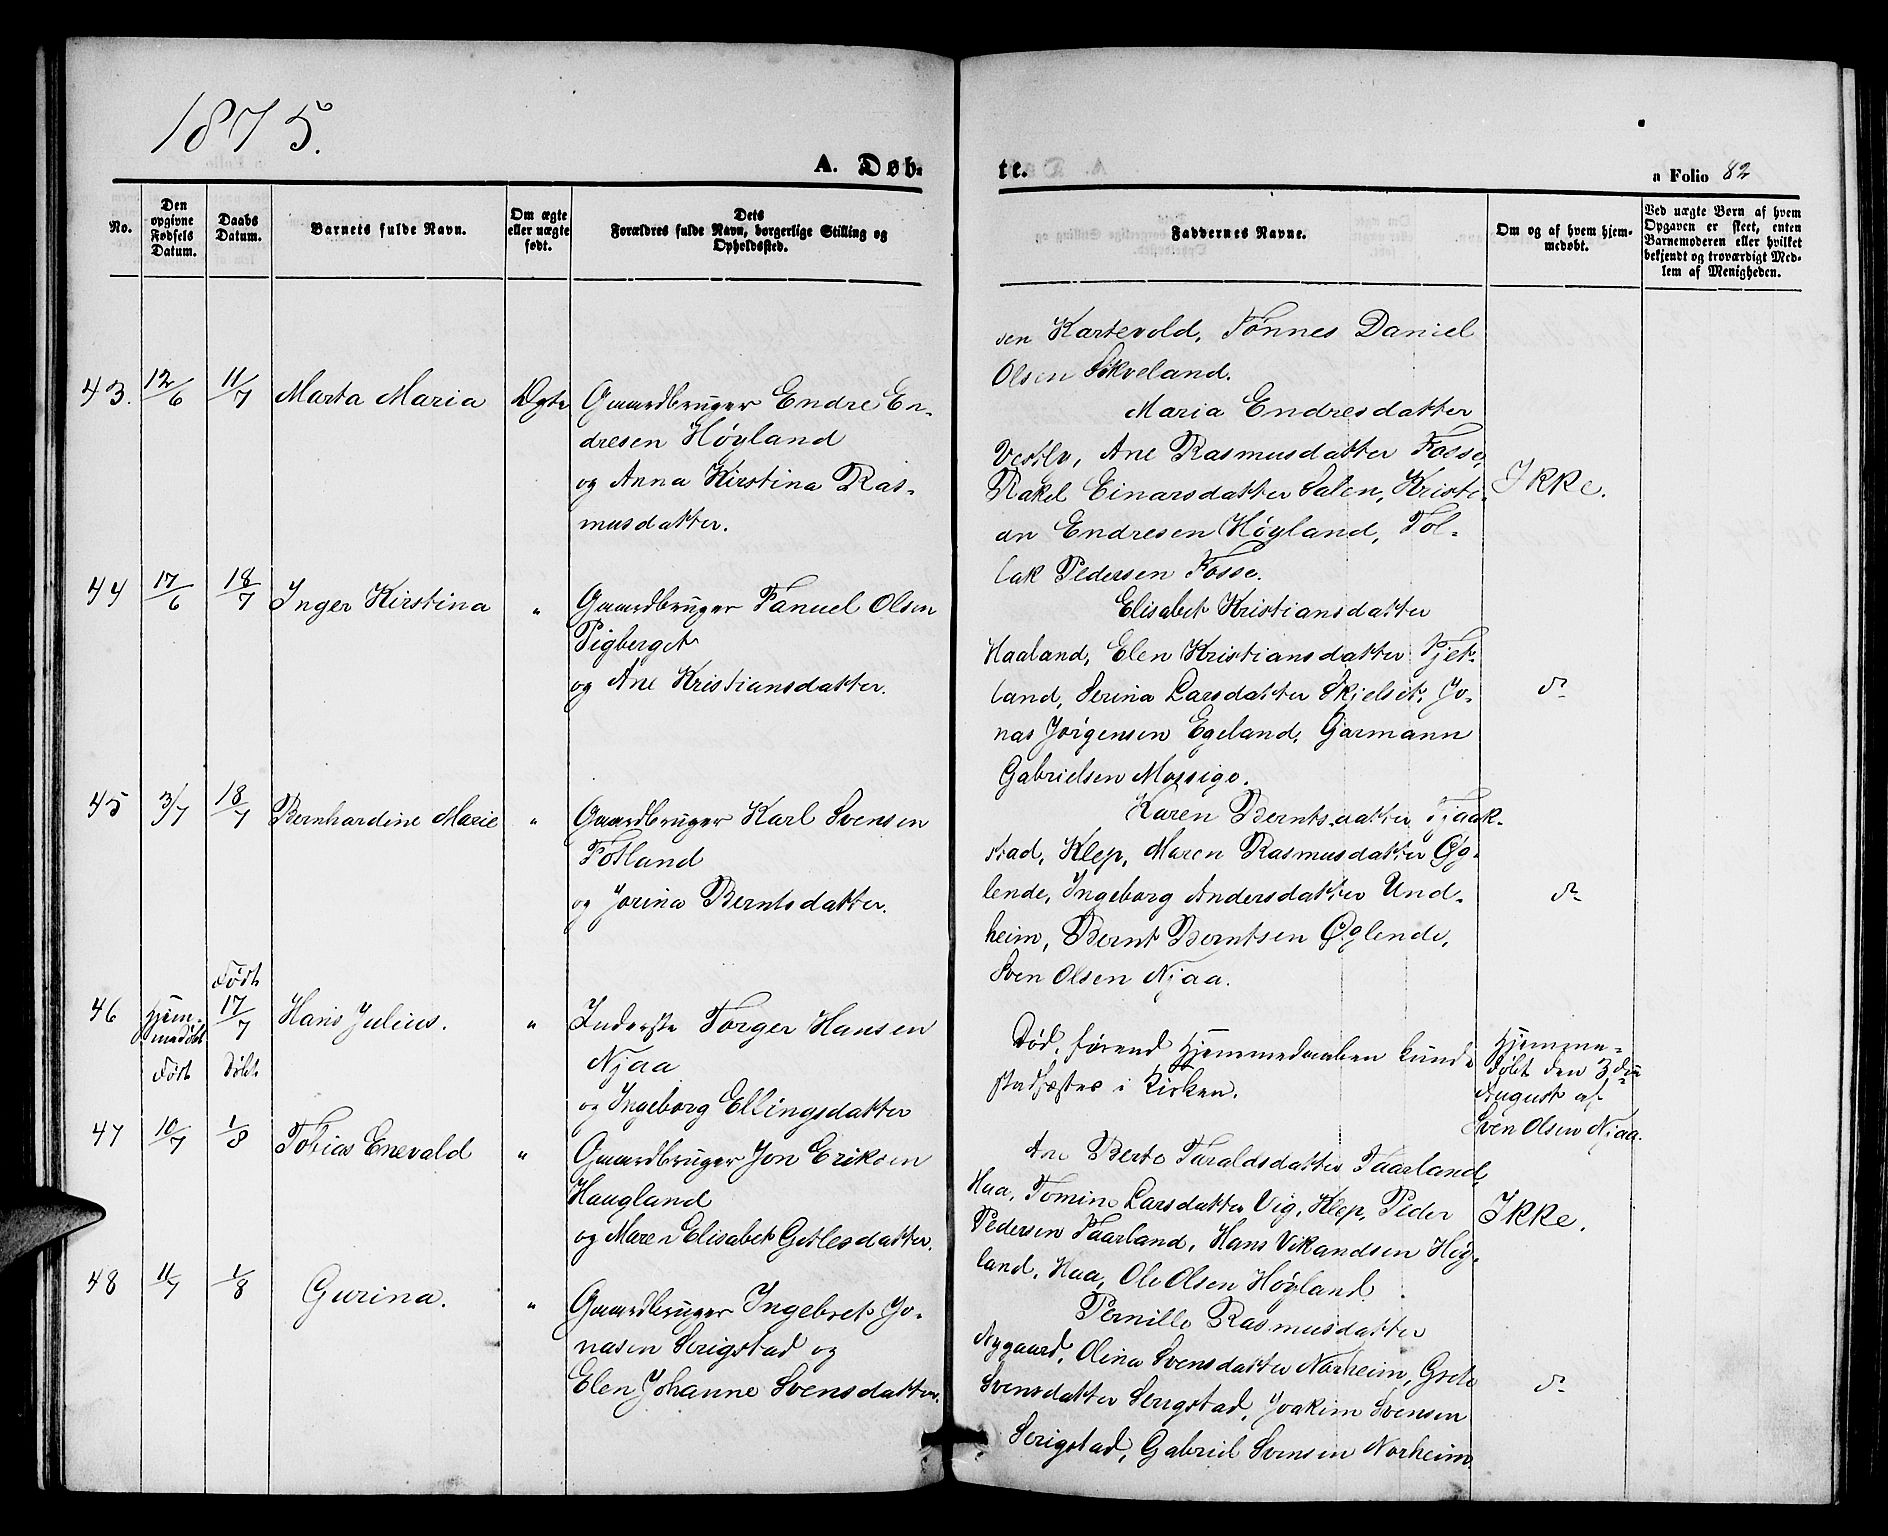 1875.
A. Døb-
te.
a Folio 82
No.
Den opgivne Fødsels Datum.
Daabs Datum.
Barnets fulde Navn.
Om ægte eller uægte født.
Dets Forældres fulde Navn, borgerlige Stilling og Opholdssted.
Faddernes Navne.
Om og af hvem hjemmedøbt.
Ved uægte Børn af hvem Opgaven er skeet, enten Barnemoderen eller hvilket bekjendt og troværdigt Medlem af Menigheden.
sen Kartevold, Tønnes Daniel
Olsen Skveland.
43. 12/6 11/7 Marta Maria Ægte Gaardbruger Endre En-
dresen Høyland
og Anna Kirstina Ras-
musdatter.
Maria Endresdatter
Vestly, Ane Rasmusdatter Fosse,
Rakel Einarsdatter Salen, Kristi-
an Endresen Høyland, Tol-
lak Pedersen Fosse.
Ikke.
44 17/6 18/7 Inger Kirstina " Gaardbruger Fanuel Olsen
Pigberget
og Ane Kristiansdatter.
Elisabet Kristiansdatter
Haaland, Elen Kristiansdatter Fjet-
land, Serina Larsdatter Skjelset, Jo-
nas Jørgensen Egeland, Garmann
Gabrielsen Mossige.
do
45 3/7 18/7 Bernhardine Marie " Gaardbruger Karl Svensen
Fotland
og Jorina Berntsdatter.
Karen Berntsdatter Tjaak-
stad, Klep, Maren Rasmusdatter Øg-
lende, Ingeborg Andersdatter Und-
heim, Bernt Berntsen Øglende,
Sven Olsen Njaa.
do
46 Hjem-
medøbt
Født
17/7
Hans Julius. " Inderste Torger Hansen
Njaa
og Ingeborg Ellingsdatter
Død, førend Hjemmedaaben kunde
stadfæstes i Kirken.
Hjemme-
døbt den 3die
August af
Sven Olsen Njaa.
Født Døbt
47 10/7 1/8 Tobias Enevald " Gaardbruger Jon Eriksen
Haugland
og Maren Elisabet Getlesdatter.
Ane Berte Taraldsdatter Taarland,
Haa, Tomine Larsdatter Vig, Klep, Peder
Pedersen Taarland, Hans Vikandsen Høy-
land, Haa, Ole Olsen Høyland.
Ikke.
48 11/7 1/8 Gurina. " Gaardbruger Ingebret Jo-
nasen Serigstad og
Elen Johanne Svensdatter.
Pernille Rasmusdatter
Nygaard, Olina Svensdatter Norheim, Grete
Svensdatter Serigstad, Joakim Svensen
Serigstad, Gabriel Svensen Norheim
do